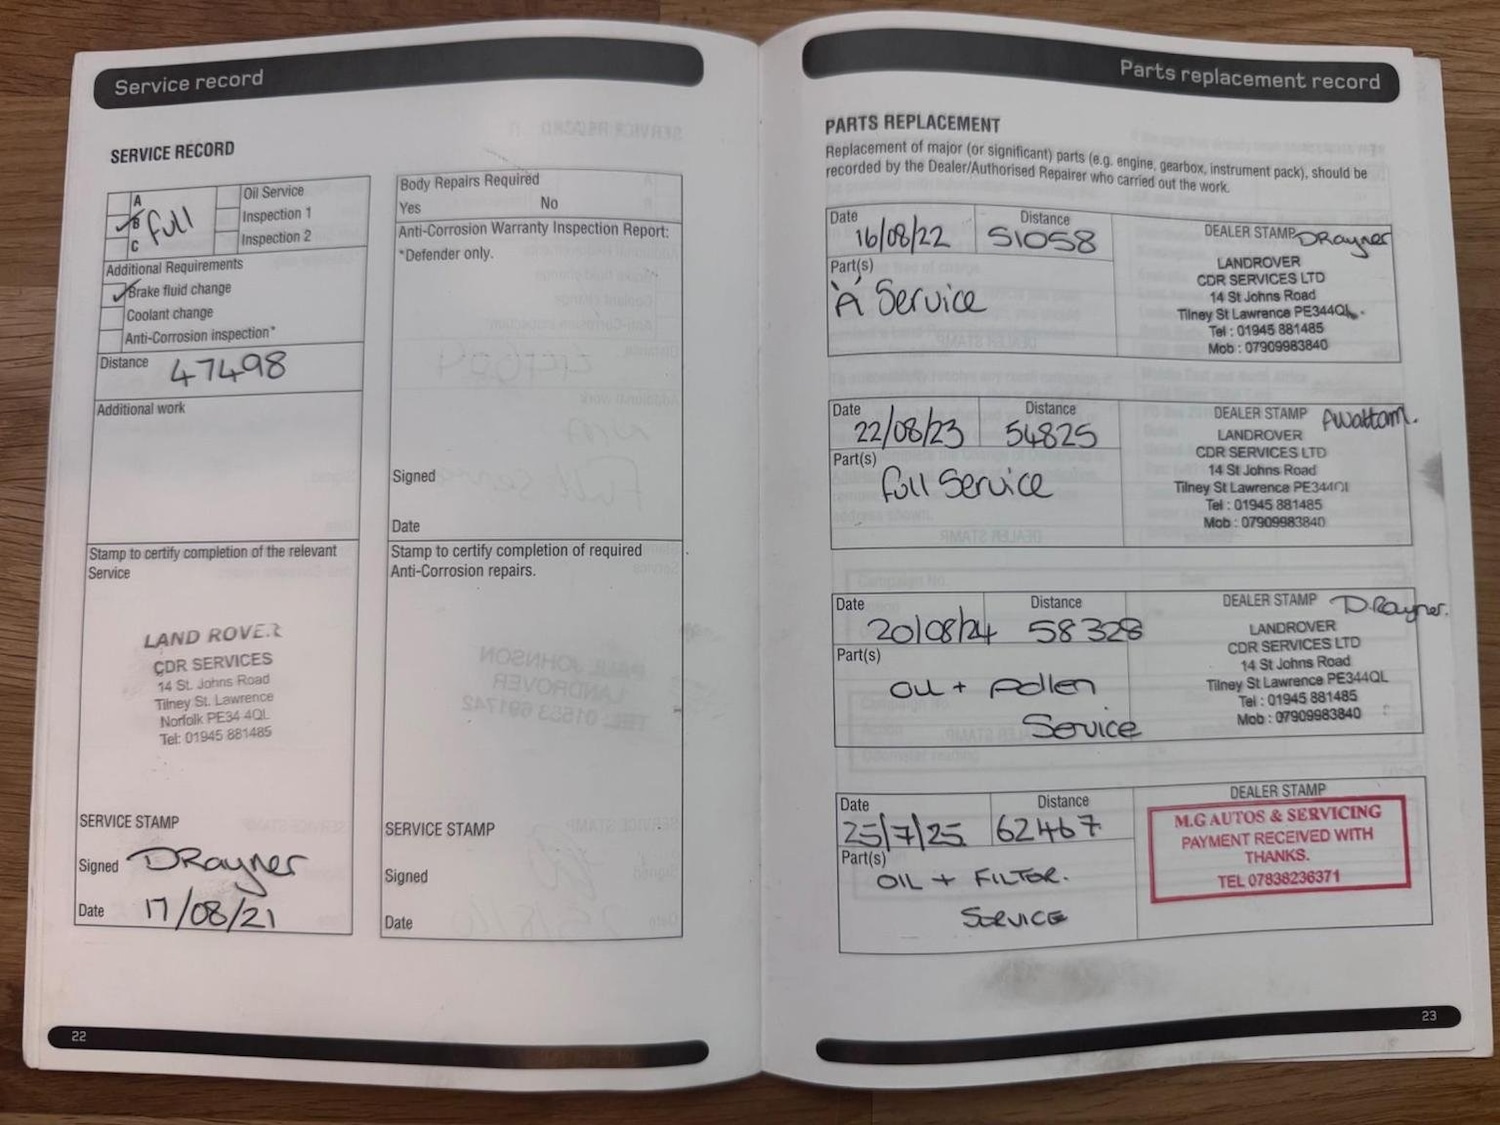 Service record
SERVICE RECORD
A
B
C
Full
Oil Service
Inspection 1
Inspection 2
Additional Requirements
Brake fluid change
Coolant change
Anti-Corrosion inspection*
Distance 47498
Additional work
Stamp to certify completion of the relevant
Service
LAND ROVER
CDR SERVICES
14 St. Johns Road
Tilney St. Lawrence
Norfolk PE34 4QL
Tel: 01945 881485
SERVICE STAMP
Signed DRayner
Date 17/08/21
Body Repairs Required
Yes No
Anti-Corrosion Warranty Inspection Report:
*Defender only.
Signed
Date
Stamp to certify completion of required
Anti-Corrosion repairs.
SERVICE STAMP
Signed
Date
22
Parts replacement record
PARTS REPLACEMENT
Replacement of major (or significant) parts (e.g. engine, gearbox, instrument pack), should be
recorded by the Dealer/Authorised Repairer who carried out the work.
Date 16/08/22
Distance 51058
Part(s)
'A' Service
DEALER STAMP DRayner
LANDROVER
CDR SERVICES LTD
14 St Johns Road
Tilney St Lawrence PE344QL
Tel : 01945 881485
Mob : 07909983840
Date 22/08/23
Distance 54825
Part(s)
Full Service
DEALER STAMP AWattam.
LANDROVER
CDR SERVICES LTD
14 St Johns Road
Tilney St Lawrence PE344QL
Tel : 01945 881485
Mob : 07909983840
Date 20/08/24
Distance 58328
Part(s)
Oil + Pollen
Service
DEALER STAMP D.Rayner.
LANDROVER
CDR SERVICES LTD
14 St Johns Road
Tilney St Lawrence PE344QL
Tel : 01945 881485
Mob : 07909983840
Date 25/7/25
Distance 62467
Part(s)
OIL + FILTER.
SERVICE
DEALER STAMP
M.G AUTOS & SERVICING
PAYMENT RECEIVED WITH
THANKS.
TEL 07838236371
23